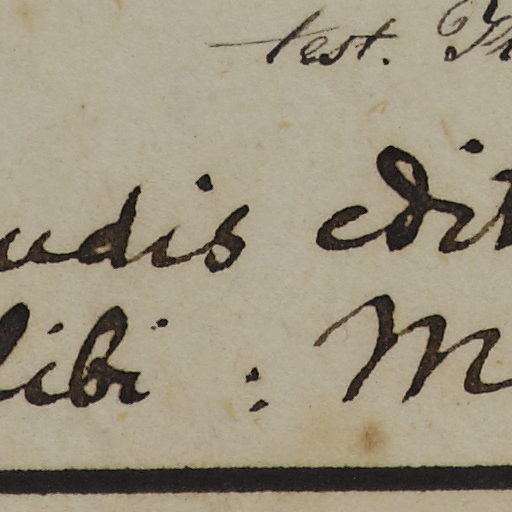 test. Th
udis edit
libi : M